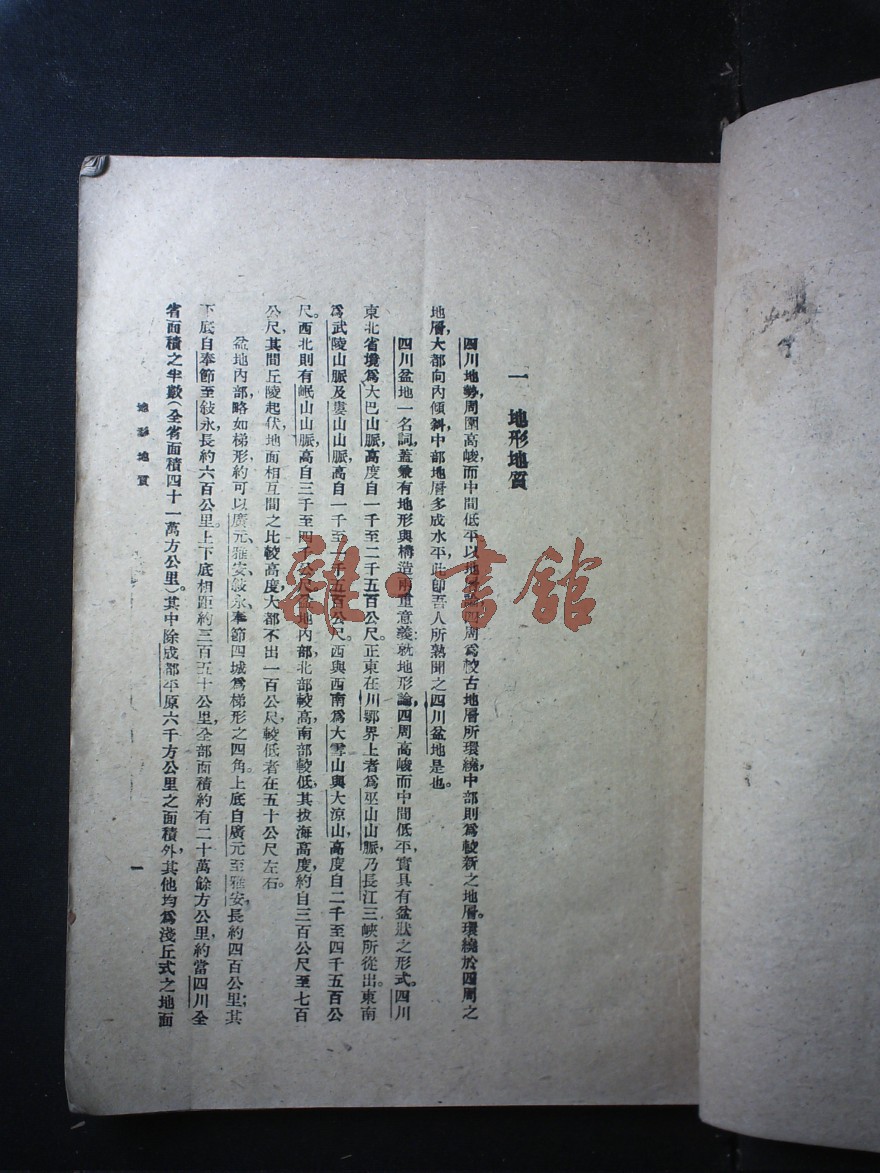 一 地形地質
四川地勢，周圍高峻，而中間低平，以地層論，四周爲較古地層所環繞，中部則爲較新之地層。環繞於四周之
地層，大部向內傾斜，中部地層多成水平，此卽吾人所熟聞之四川盆地是也。
四川盆地一名詞，蓋兼有地形與構造兩重意義：就地形論，四周高峻而中間低平，實具有盆狀之形式。四川
東北省境爲大巴山脈，高度自一千至二千五百公尺。正東在川鄂界上者爲巫山山脈，乃長江三峽所從出。東南
爲武陵山脈及婁山山脈，高自一千至一千五百公尺。西與西南爲大雪山與大涼山，高度自二千至四千五百公
尺。西北則有岷山山脈，高自三千至四千公尺。盆地內部，北部較高，南部較低，其拔海高度，約自三百公尺至七百
公尺，其間丘陵起伏，地面相互間之比較高度，大都不出一百公尺，較低者在五十公尺左右。
盆地內部，略如梯形，約可以廣元、雅安、敍永、奉節四城爲梯形之四角。上底自廣元至雅安，長約四百公里；其
下底自奉節至敍永，長約六百公里。上下底相距約三百五十公里，全部面積約有二十萬餘方公里，約當四川全
省面積之半數（全省面積四十一萬方公里）。其中除成都平原六千方公里之面積外，其他均爲淺丘式之地面
地形地質
一
雜·書館